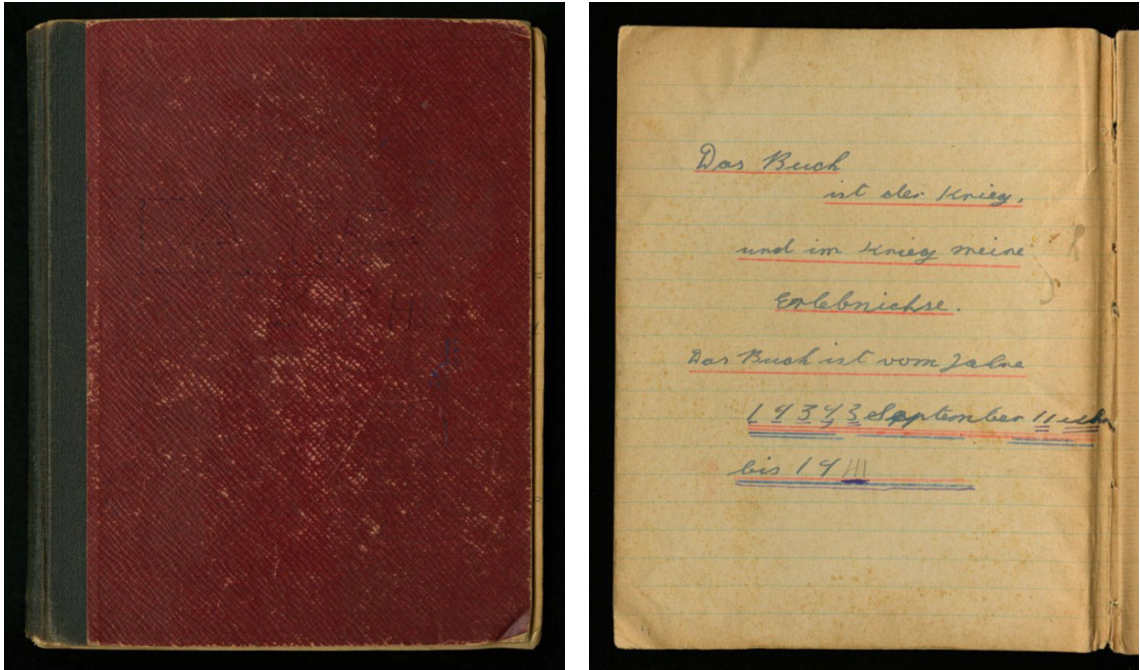 Das Buch
ist der Krieg,
und im Krieg meine
Erlebnichse.
Das Buch ist vom Jahre
1 9 3 9 3 September 11 uhr
bis 19